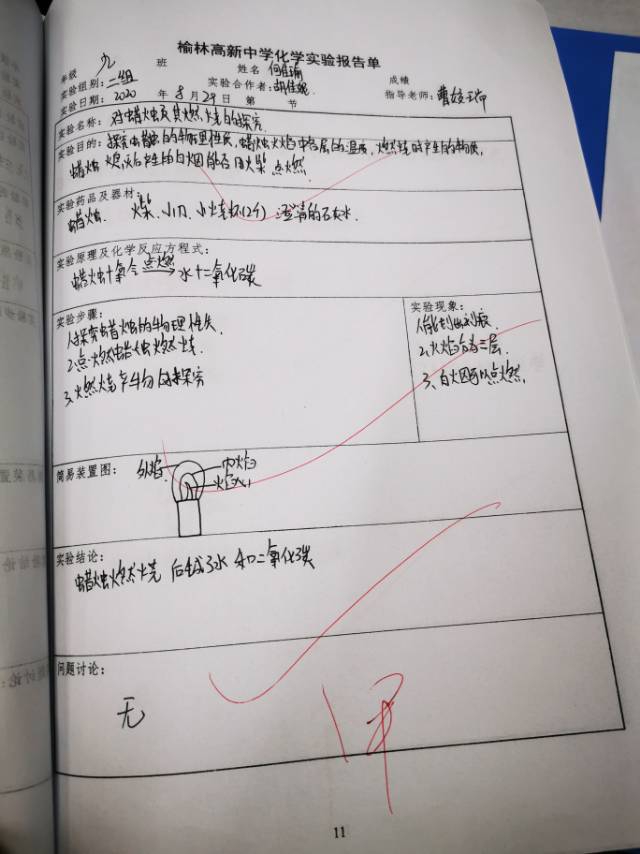 榆林高新中学化学实验报告单
年级 九 班 姓名 何佳瑜 成绩
实验组别:二组 实验合作者:胡佳妮 指导老师:
实验日期:2020 年 8 月 29 日 第 节
实验名称:对蜡烛及其燃烧的探究
实验目的:探究蜡烛的物理性质,蜡烛火焰中各层的温度,燃烧时产生的物质,
蜡烛熄灭后产生的白烟能否用火柴点燃
实验药品及器材:
蜡烛、火柴、小刀、小烧杯(2个) 澄清的石灰水
实验原理及化学反应方程式:
蜡烛+氧气 点燃→ 水+二氧化碳
实验步骤:
1.探究蜡烛的物理性质
2.点燃蜡烛燃烧
3.燃烧产物的探究
实验现象:
2.火焰分为三层
3.白烟可以点燃
简易装置图:
外焰 内焰
焰心
实验结论:
蜡烛燃烧后生成了水和二氧化碳
问题讨论:
无
11